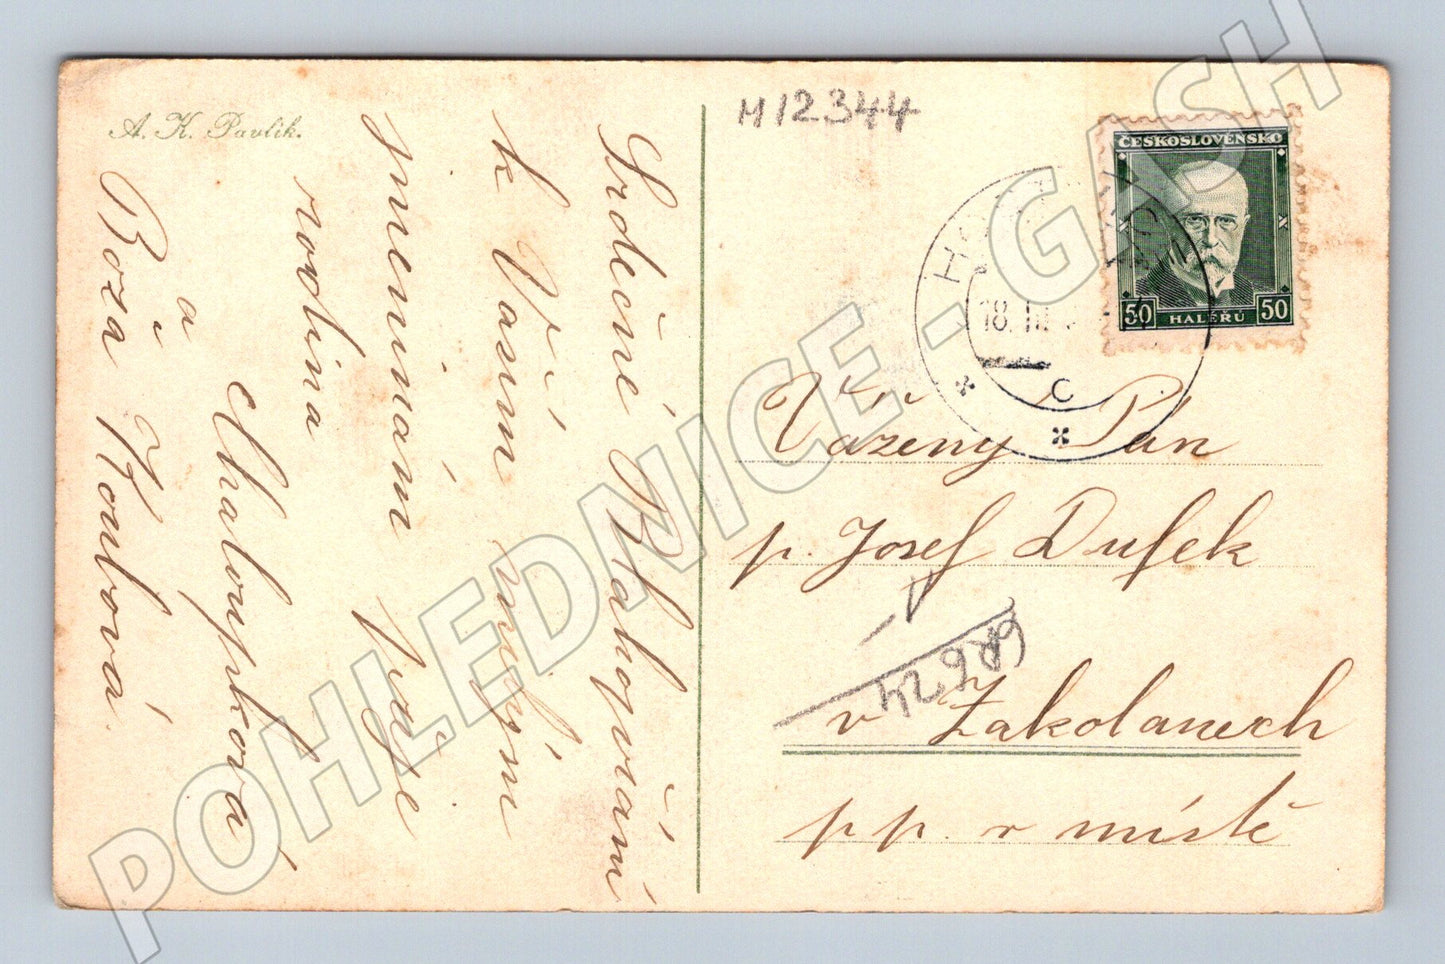 A. K. Pavlík.
Srdečné Blahopřání
k Vašim milým
jmeninám přeje
rodina
Chaloupková
a
Boža
M12344
ČESKOSLOVENSKO
50 HALÉŘŮ 50
18. III.
C
Vážený Pán
p. Josef Dufek
v Zakolanech
p. p. v místě
6R624
POHLEDNICE - GASH